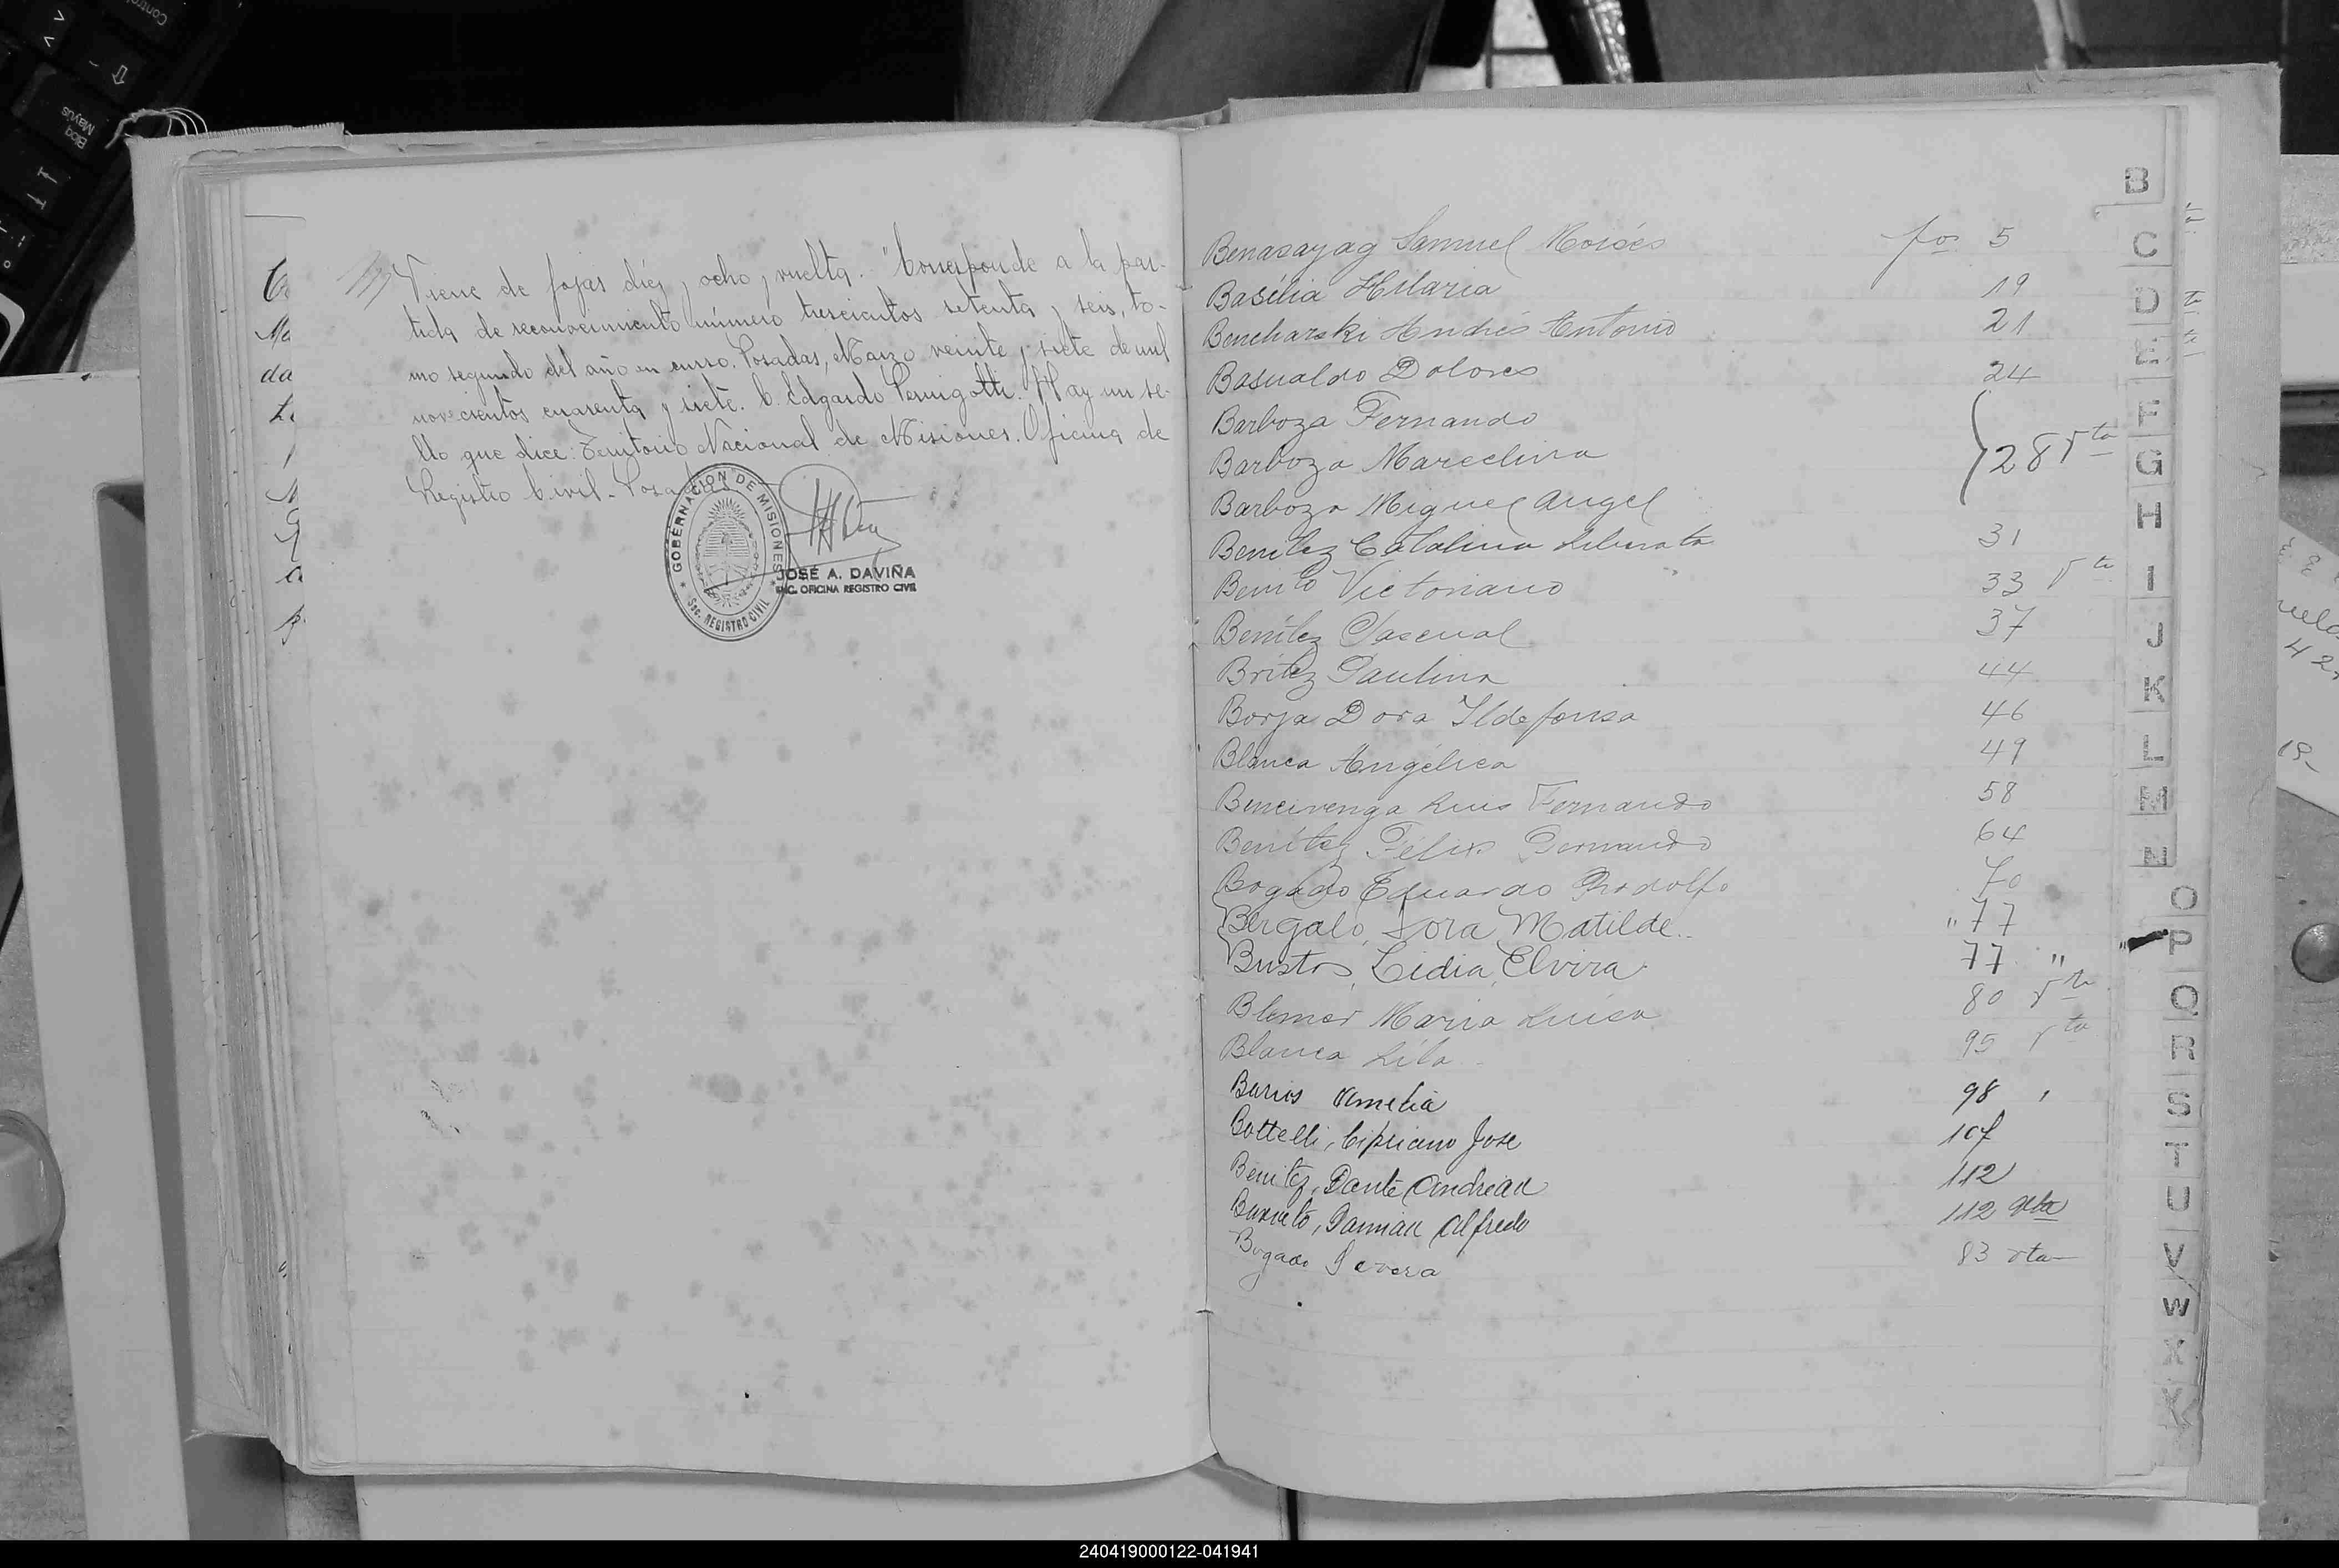 Viene de fojas diez y ocho vuelta. "Corresponde a la par-
tida de reconocimiento número trescientos setenta y seis, to-
mo segundo del año en curso. Posadas, Marzo veinte y siete de mil
novecientos cuarenta y siete. C. Edgardo Pernigotti. Hay un se-
llo que dice: Territorio Nacional de Misiones. Oficina de
Registro Civil - Posadas
GOBERNACION DE MISIONES
Sec. REGISTRO CIVIL
JOSÉ A. DAVIÑA
ENC. OFICINA REGISTRO CIVIL
Benasayag Samuel Moisés fos 5
Basilia Hilaria 19
Bencharski Andrés Antonio 21
Basualdo Dolores 24
Barboza Fernando
Barboza Marcelina 28 vta
Barboza Miguel Angel
Benítez Catalina Liberata 31
Benito Victoriano 33 vta
Benítez Pascual 37
Britez Paulina 44
Borja Dora Ildefonsa 46
Blanca Angélica 49
Bencivenga Luis Fernando 58
Benítez Félix Bernardo 64
Bogado Eduardo Rodolfo 70
Bergalo, Dora Matilde " 77
Bustos, Lidia Elvira 77 "
Blemer Maria Luisa 80 vta
Blanca Lila 95 vta
Barios 98
Bottelli, Cipriano José 107
Benitez, Dante 112
Damian Alfredo 112 vta
Bogado Severa 83 vta
B
C
D
E
F
G
H
I
J
K
L
M
N
O
P
Q
R
S
T
U
V
W
X
Y
240419000122-041941